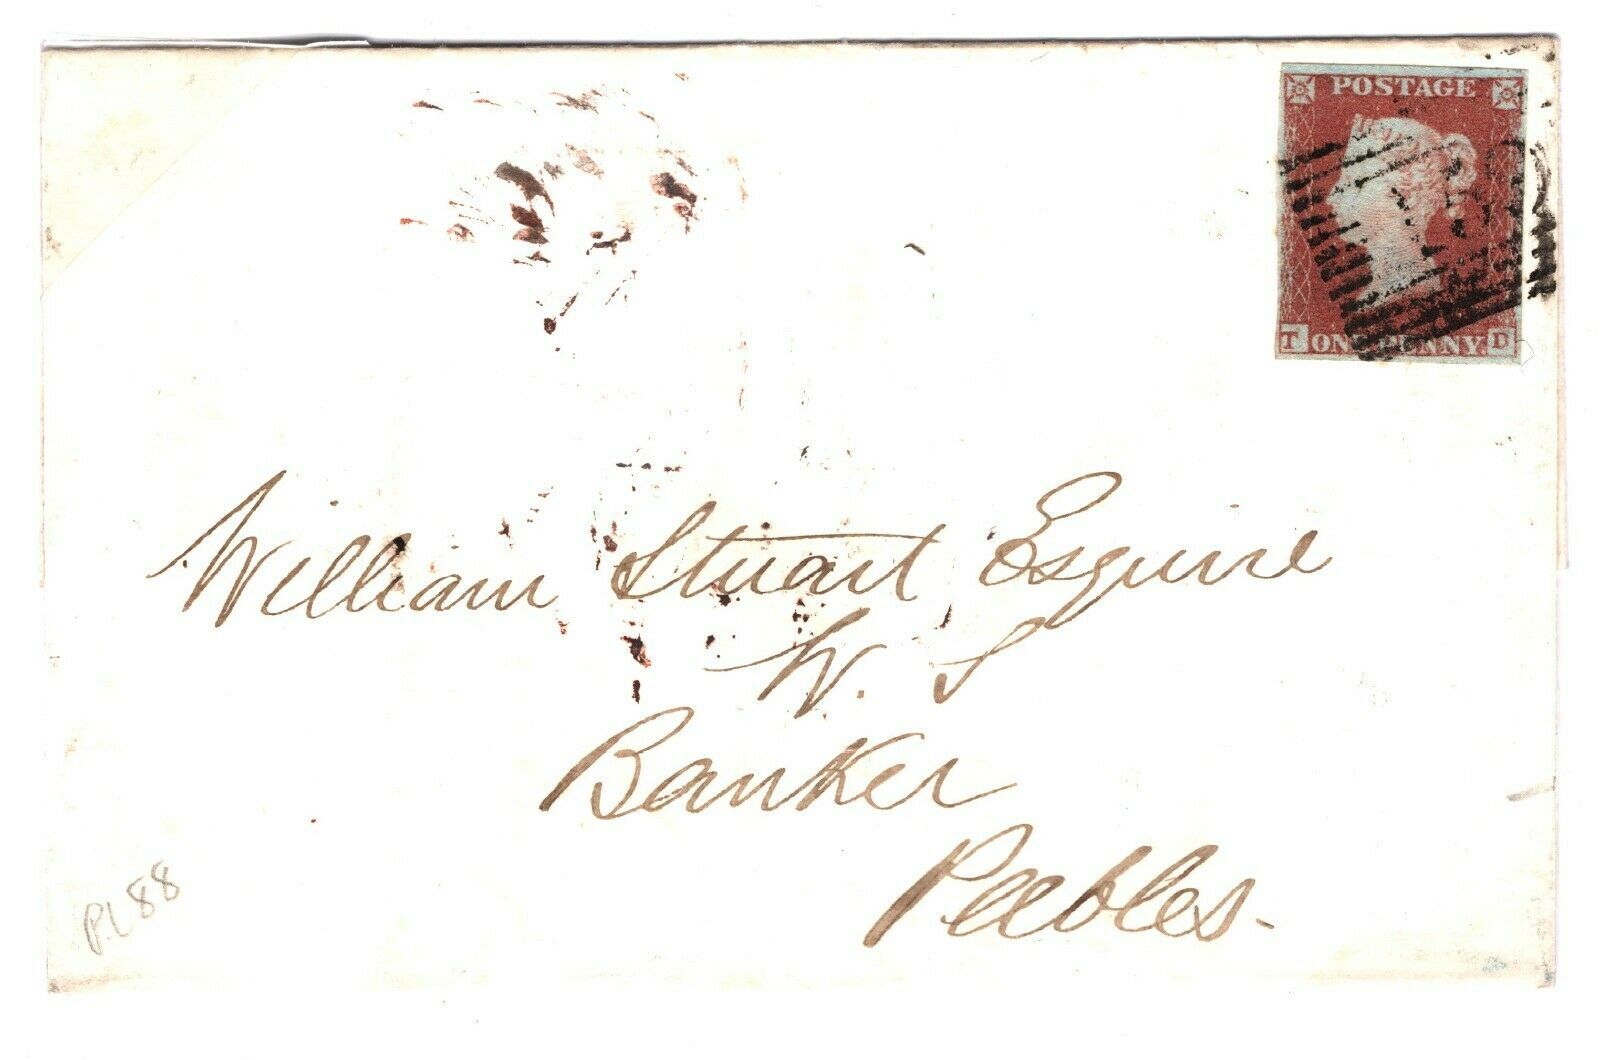 POSTAGE
T ONE PENNY. D
William Stuart Esquire
W. S
Banker
Peebles.
PL 88